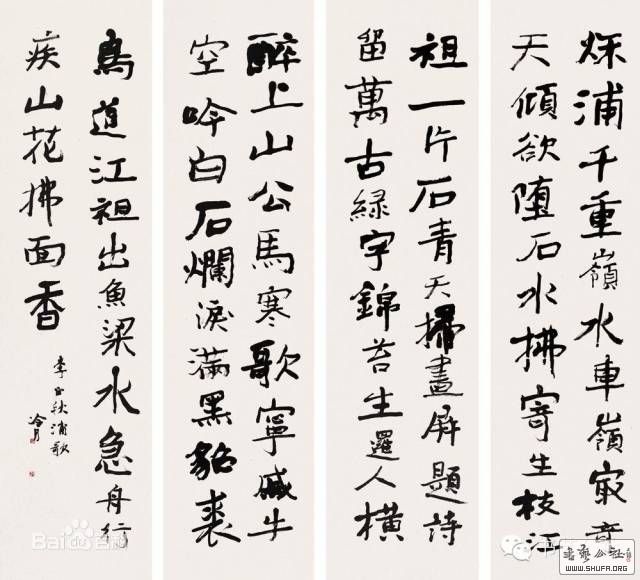 秋浦千重嶺水車嶺最奇
天傾欲墮石水拂寄生枝江
祖一片石青天掃畫屏題詩
留萬古綠字錦苔生邏人橫
醉上山公馬寒歌寧戚牛
空吟白石爛淚滿黑貂裘
鳥道江祖出魚梁水急舟行
疾山花拂面香
李白秋浦歌
冷月
Bai百科
WWW.SHUFA.ORG